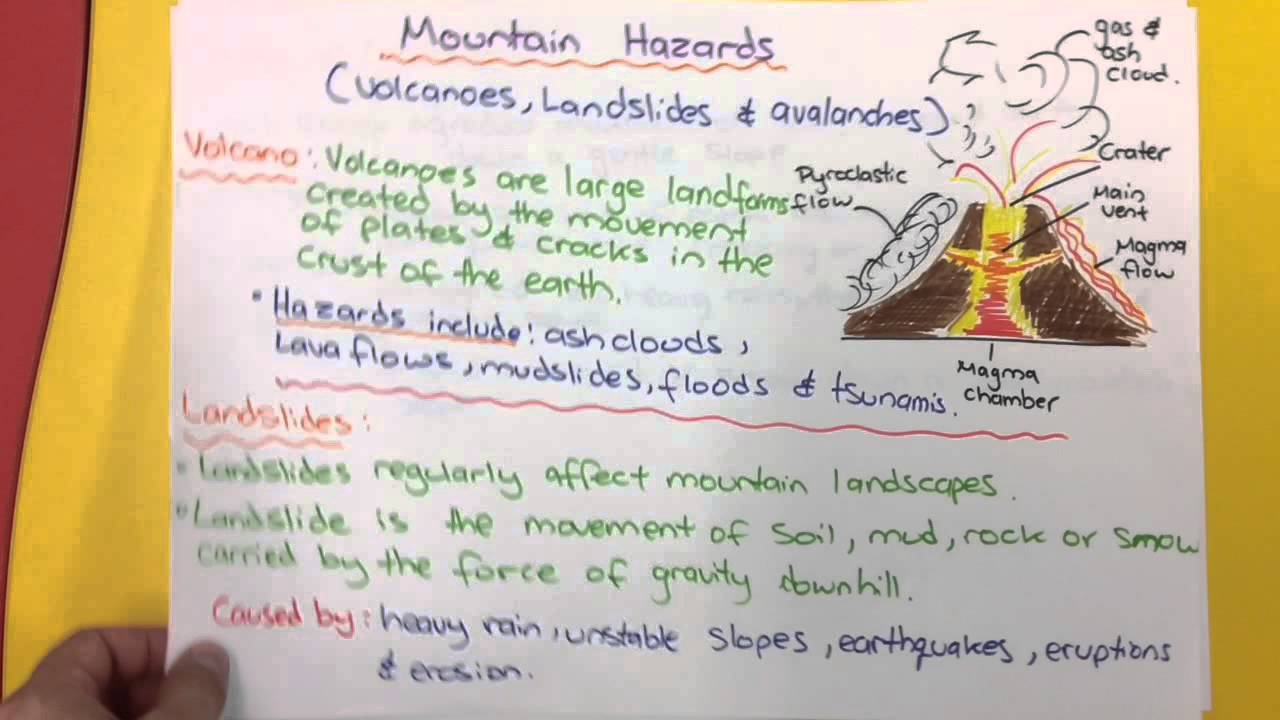 Mountain Hazards
(Volcanoes, Landslides & avalanches)
Volcano: Volcanoes are large landforms
created by the movement
of plates & cracks in the
crust of the earth.
• Hazards include: ash clouds,
Lava flows, mudslides, floods & tsunamis.
gas &
ash
cloud.
Crater
Main
vent
Magma
flow
Pyroclastic
flow
Magma
chamber
Landslides:
• Landslides regularly affect mountain landscapes.
• Landslide is the movement of soil, mud, rock or smow
carried by the force of gravity downhill.
Caused by: heavy rain, unstable slopes, earthquakes, eruptions
& erosion.